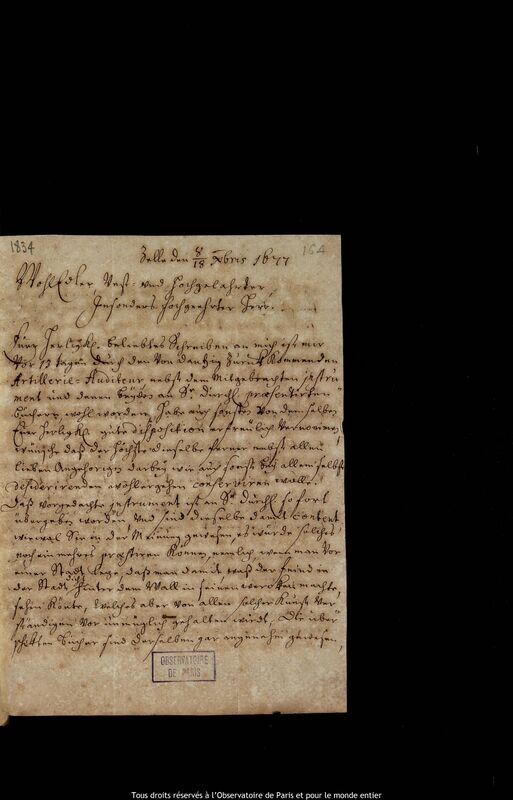 1834
164
Zelle den 8/18 Xbris 1677
WohlEdler, Vest- und Hochgelahrter,
Insonders Hochgeehrter Herr.
beliebtes Schreiben an mich ist mir
vor 13 tagen durch den von Dantzig zurück kommenden
Artillerie-Auditeur nebst dem mitgebrachten instru
ment und denen beyden an Sr. Durchl. præsentirten
Büchern wohl worden, habe auch sonsten von demselben
gute disposition erfreulich vernommen,
wünsche daß der Höchste dieselbe ferner nebst allen
lieben Angehörigen darbey wie auch sonst bey allem selbst
desiderirenden wohlergehen conserviren wolle.
Daß vorgedachte instrument ist an Sr. Durchl. so fort
übergeben worden, und sind dieselbe damit content,
wiewol Sie in der Meinung gewesen, es würde solches
noch ein mehres præstiren können, nemlich, wenn man vor
einer Stadt lege, daß man damit waß der feind in
der Stadt hinter dem Wall in seinen wercken machte,
sehen könte, welches aber von allen solcher Kunst ver
ständigen vor unmüglich gehalten wird. Die über
schickten bücher sind derselben gar angenehm gewesen,
OBSERVATOIRE
DE PARIS
Tous droits réservés à l'Observatoire de Paris et pour le monde entier